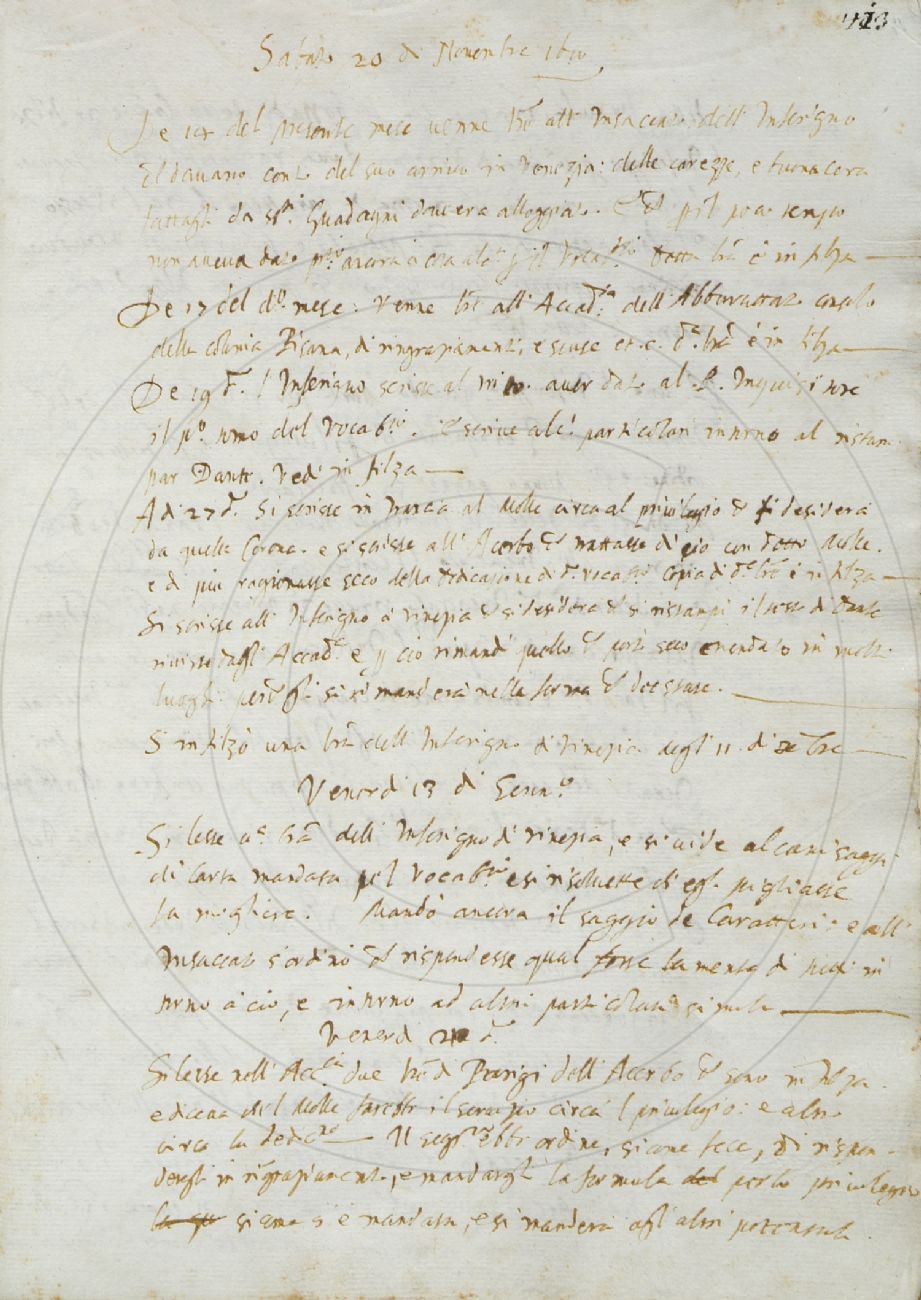 113
Sabato 20 di Novembre 1610
De 12 del presente mese venne lrã all' Insaccato dell' Inferigno
E davano conto del suo arrivo in Venezia: delle carezze, e buona cera
fattagli da Ss.ri Guadagni dov'era alloggiato. Et p il poco tempo
non aveva dato ancora a cosa alc.a p il Vocab.rio Detta lrã è in filza
De 17 del d.o mese. Venne lrã all' Accad.a dell' Abburattato consolo
della colonia Pisana, di ringraziamenti, e scuse et.c. d.a lrã è in filza
De 19 d.o l' Inferigno scrisse al aver dato al P. Inquisitore
il p.o tomo del Vocab.rio. E scrive alc.i particolari intorno al ristam
par Dante. Vedi in filza
A di 27 d.o Si scrisse in Francia al Molle circa al privilegio che si desidera
da quella Corona. e si scrisse all' Acerbo che trattasse di ciò con detto Molle.
e di più ragionasse seco della dedicazione di d.o vocab.rio Copia di d.e lrẽ è in filza
Si scrisse all' Inferigno a Vinezia che si desidera che si ristampi il testo di Dante
rivisto dagl' Accad.ci e p ciò rimandi quello che portò seco emendato in molti
luoghi però gli si rimanderà nella forma che dee stare.
S' infilzò una lrã dell' Inferigno di Vinezia degl' 11 di xbre
Venerdi 13 di Genn.o
Si lesse u.a lrã dell' Inferigno di Vinezia, e si vide alcuni saggi
di Carta mandata pel Vocab.rio e si risolvette ch' egli pigliasse
la migliore. Mandò ancora il saggio de Caratteri: e all'
Insaccato s' ordinò che rispondesse qual fosse la mente di
torno a ciò, e intorno ad altri particolari
Venerdi d.o
Si lesse nell' Acc.ia due lrẽ di Parigi dell' Acerbo che sono in filza.
e diceva del Molle farebbe il servizio circa l privilegio: e altro
circa la dedic.ne Il segr.rio ebbe ordine, si come fece, di rispon-
dergli in ringraziamento, e mandargli la formula del per lo privilegio
la si come s' è mandata, e si manderà agl' altri potentati.